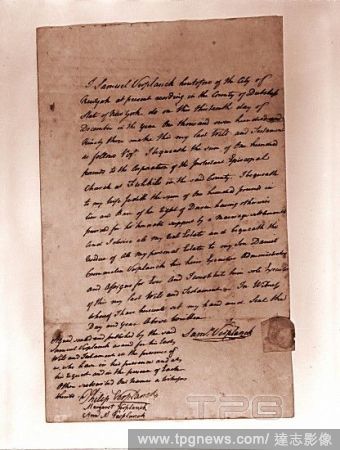 I Samuel Verplanck heretofore of the City of
New York at present residing in the County of Dutchess
State of New York do on this thirteenth day of
December in the Year One thousand seven hundred and
Ninety three make this my last Will and Testament
as follows Viz. I bequeath the sum of One hundred
pounds to the Corporation of the Protestant Episcopal
Church at Fishkill in the said County. I bequeath
to my wife Judith the sum of One hundred pounds in
lieu and Bar of her right of Dower having otherwise
provided for her support by a Marriage settlement
and I devise all my real Estate and bequeath the
residue of all my personal Estate to my Son Daniel
Crommelin Verplanck his heirs Executors Administrators
and Assigns for Ever And I constitute him sole Executor
of this my last Will and Testament. In Witness
whereof I have hereunto set my hand and Seal the
Day and Year Above Written
Saml. Verplanck
Signed sealed and published by the said
Samuel Verplanck as and for his last
Will and Testament in the presence of
us who have in his presence and at
his request and in the presence of Each
Other subscribed Our Names as Witnesses
thereto
Philip Verplanck
Margaret Verplanck
Ann M Verplanck
TPG
www.tpgnews.com/達志影像